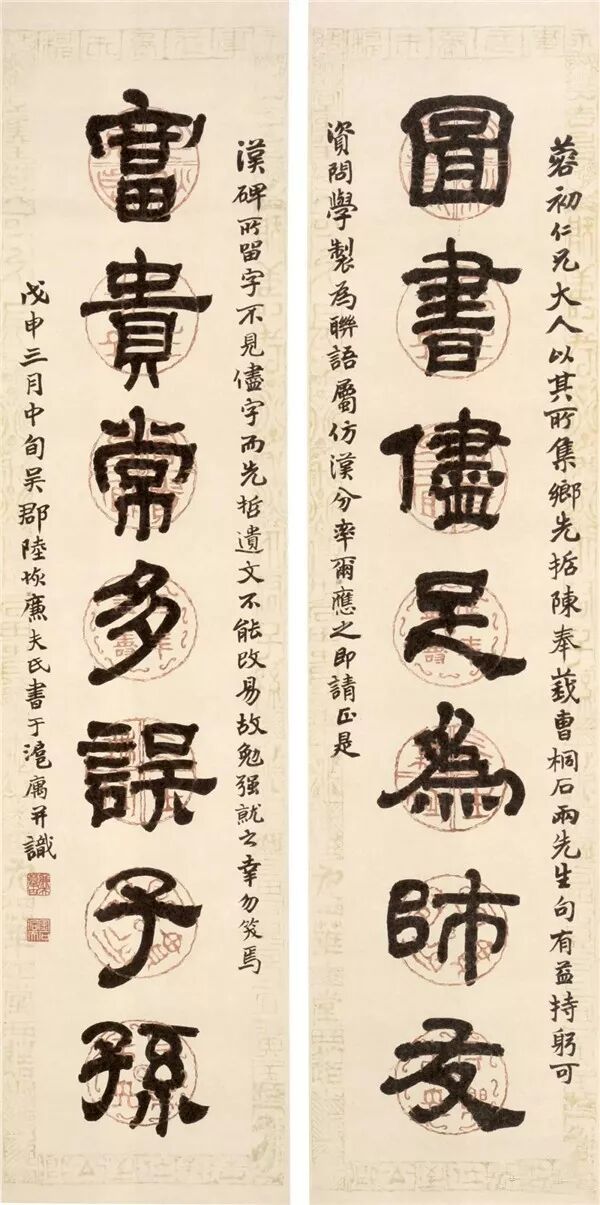 圖書儘足為師友
蓉初仁兄大人以其所集鄉先哲陳奉莪曹桐石兩先生句有益持躬可
資問學製為聯語屬仿漢分率爾應之即請正是
富貴常多誤子孫
漢碑所留字不見儘字而先哲遺文不能改易故勉強就之幸勿笑焉
戊申三月中旬吳郡陸恢廉夫氏書于滬寓并識